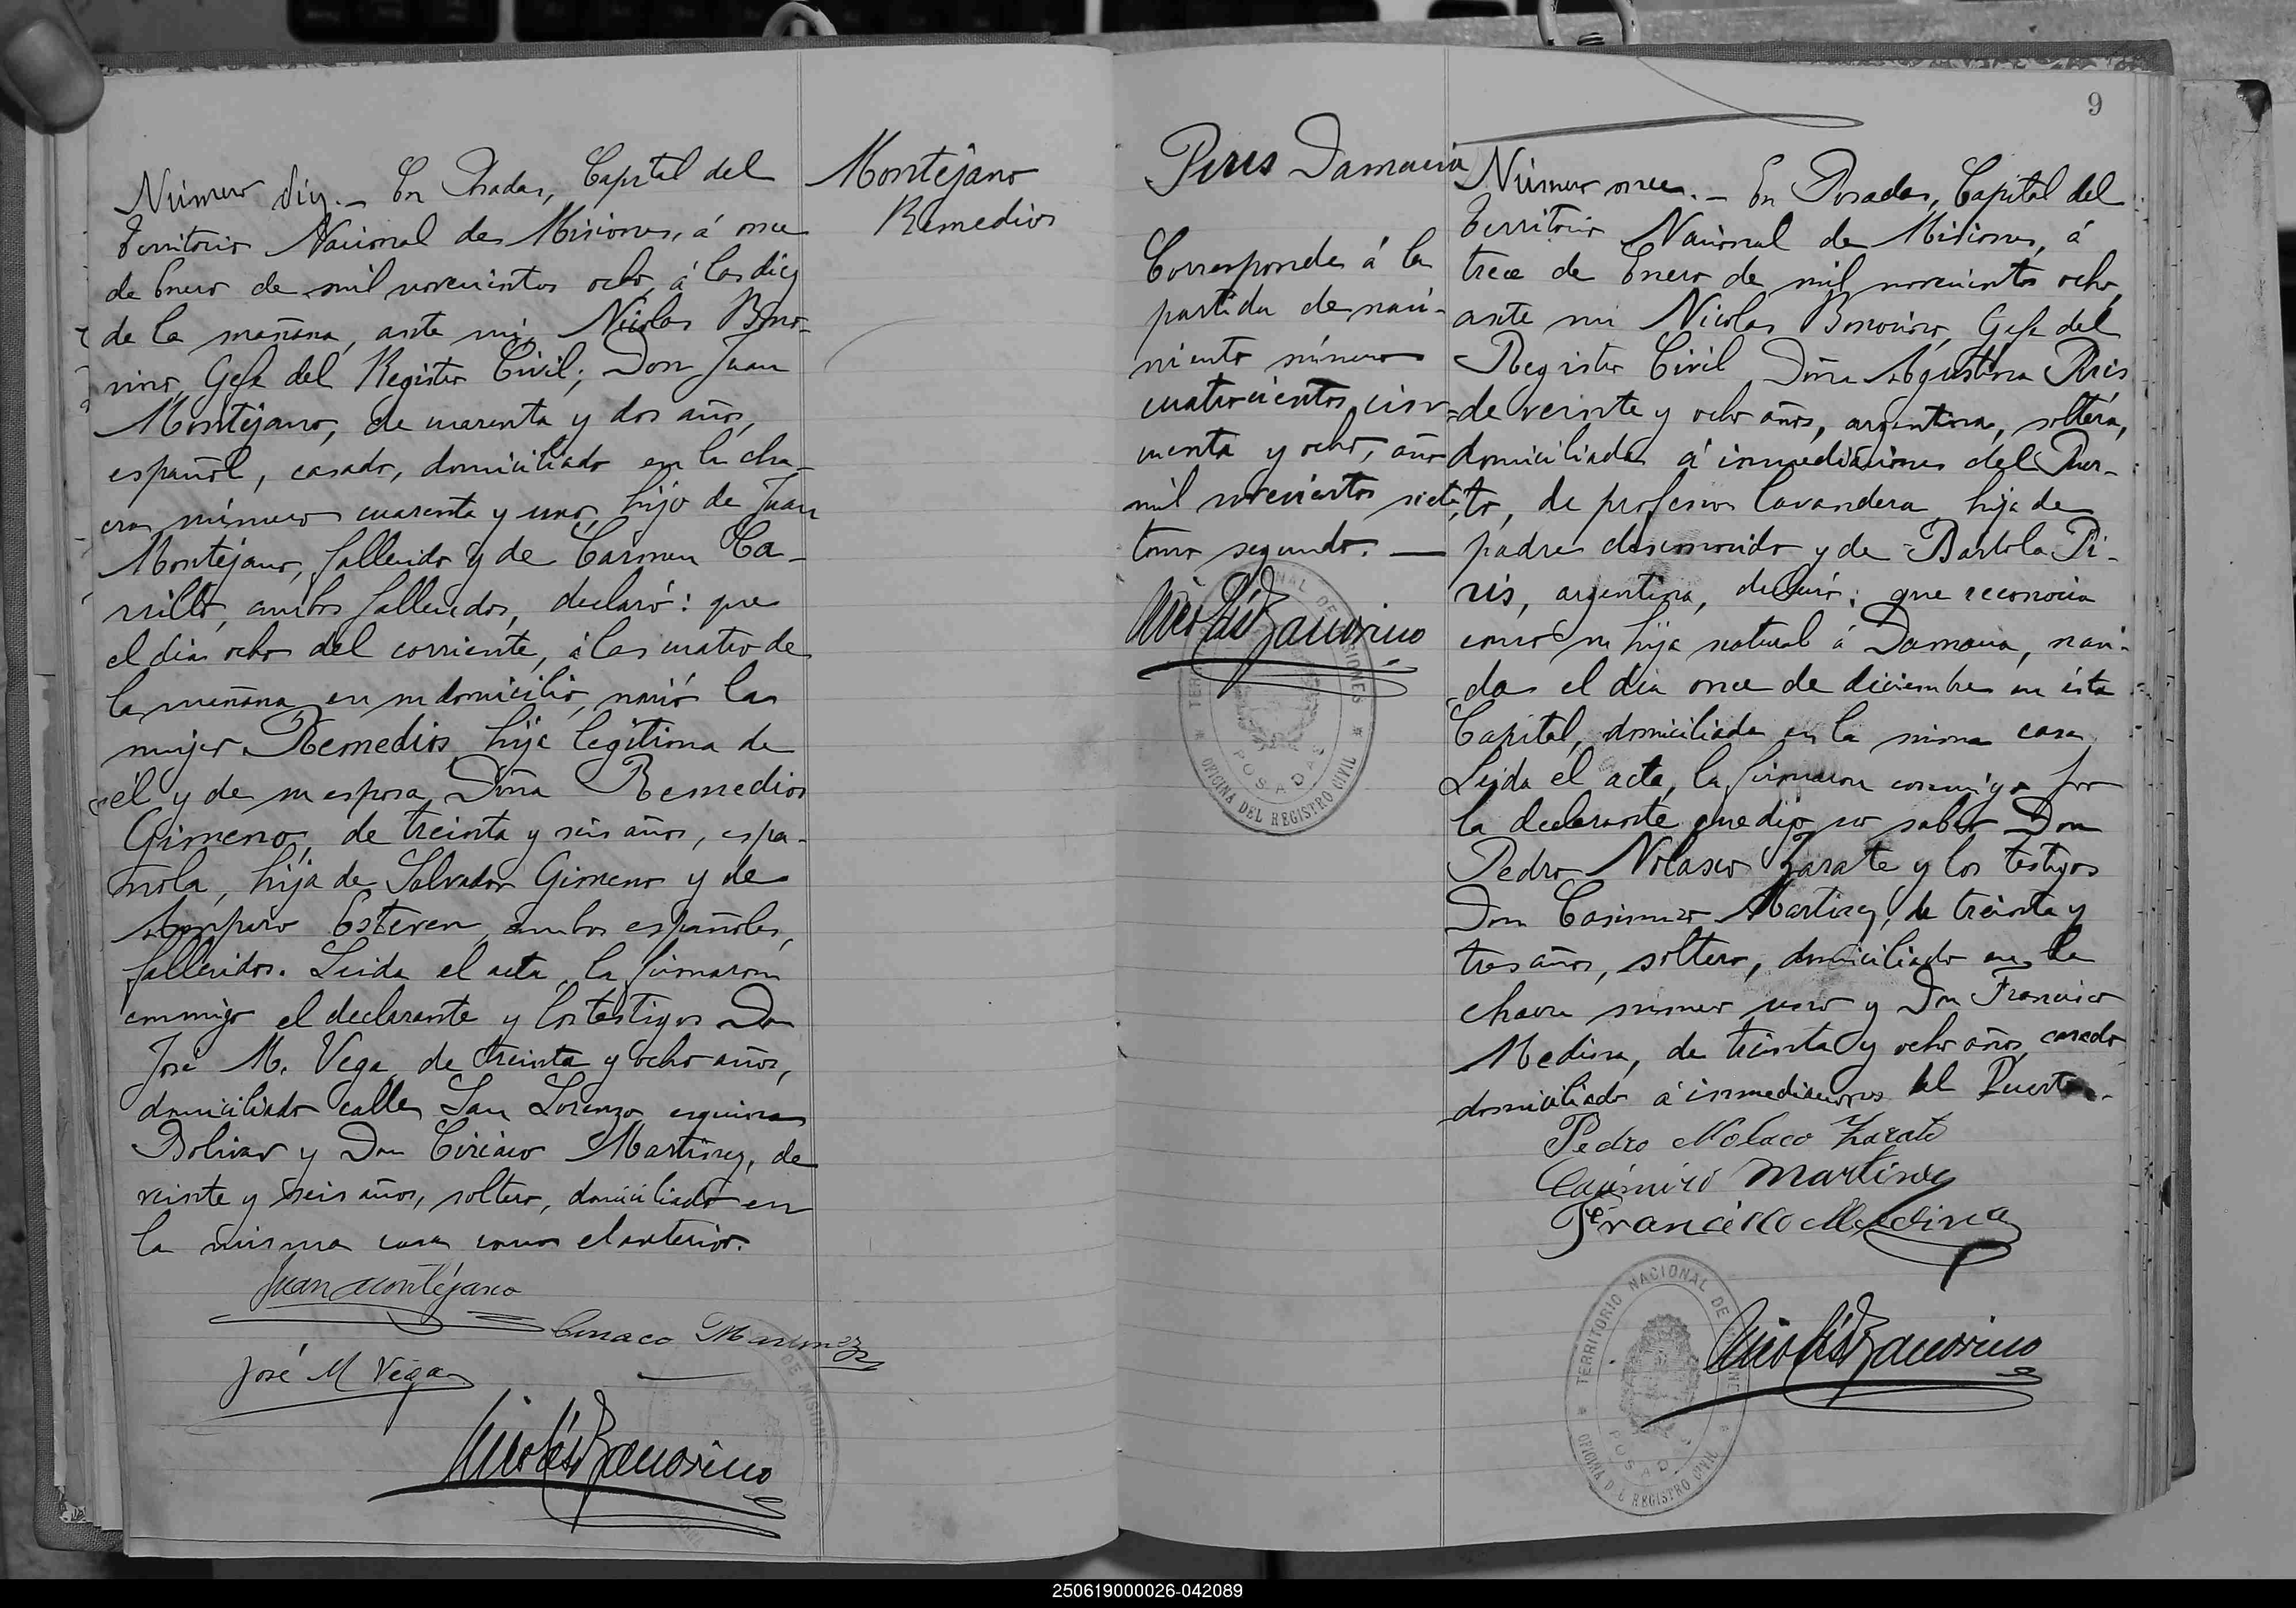 Número diez.- En Posadas, Capital del
Territorio Nacional de Misiones, á once
de Enero de mil novecientos ocho, á las diez
de la mañana, ante mi, Nicolas Bono-
rino, Gefe del Registro Civil; Don Juan
Montéjano, de cuarenta y dos años,
español, casado, domiciliado en la cha-
cra número cuarenta y uno, hijo de Juan
Montéjano, fallecido y de Cármen Ca-
rrillo, ambos fallecidos, declaró: que
el dia ocho del corriente, á las cuatro de
la mañana, en su domicilio, nació la
mujer Remedios, hija legitima de
él y de su esposa Doña Remedios
Gimeno, de treinta y seis años, espa-
ñola, hija de Salvador Gimeno y de
Amparo Esteven, ambos españoles,
fallecidos. Leida el acta, la firmaron
conmigo el declarante y los testigos Don
José M. Vega, de treinta y ocho años,
domiciliado calle San Lorenzo esquina
Bolivar y Don Ciriaco Martinez, de
veinte y seis años, soltero, domiciliado en
la misma casa como el anterior.
Juan Montéjano
Ciriaco Martinez
José M Vega
Nicolás Bonorino
DE MISIONES
Montéjano
Remedios
9
Piris Damacia
Corresponde á la
partida de naci-
miento número
cuatrocientos cin-
cuenta y ocho, año
mil novecientos siete,
tomo segundo. —
Nicolás Bonorino
TERRITORIO NACIONAL DE MISIONES
POSADAS
OFICINA DEL REGISTRO CIVIL
Número once.- En Posadas, Capital del
Territorio Nacional de Misiones, á
trece de Enero de mil novecientos ocho,
ante mi Nicolas Bonorino, Gefe del
Registro Civil Doña Agustina Piris
de veinte y ocho años, argentina, soltera,
domiciliada á inmediaciones del Puer-
to, de profesion lavandera, hija de
padre desconocido y de Bartola Pi-
ris, argentina, declaró: que reconocia
como su hija natural á Damacia, naci-
da el dia once de diciembre en ésta
Capital, domiciliada en la misma casa.
Leida el acta, la firmaron conmigo por
la declarante que dijo no saber Don
Pedro Nolasco Zarate y los testigos
Don Casimiro Martinez, de treinta y
tres años, soltero, domiciliado en la
chacra número uno y Don Francisco
Medina, de treinta y ocho años, casado
domiciliado á inmediaciones del Puerto.
Pedro Nolaco Zarate
Casimiro Martinez
Francisco Medina
Nicolás Bonorino
TERRITORIO NACIONAL DE MISIONES
POSADAS
OFICINA DEL REGISTRO CIVIL
250619000026-042089